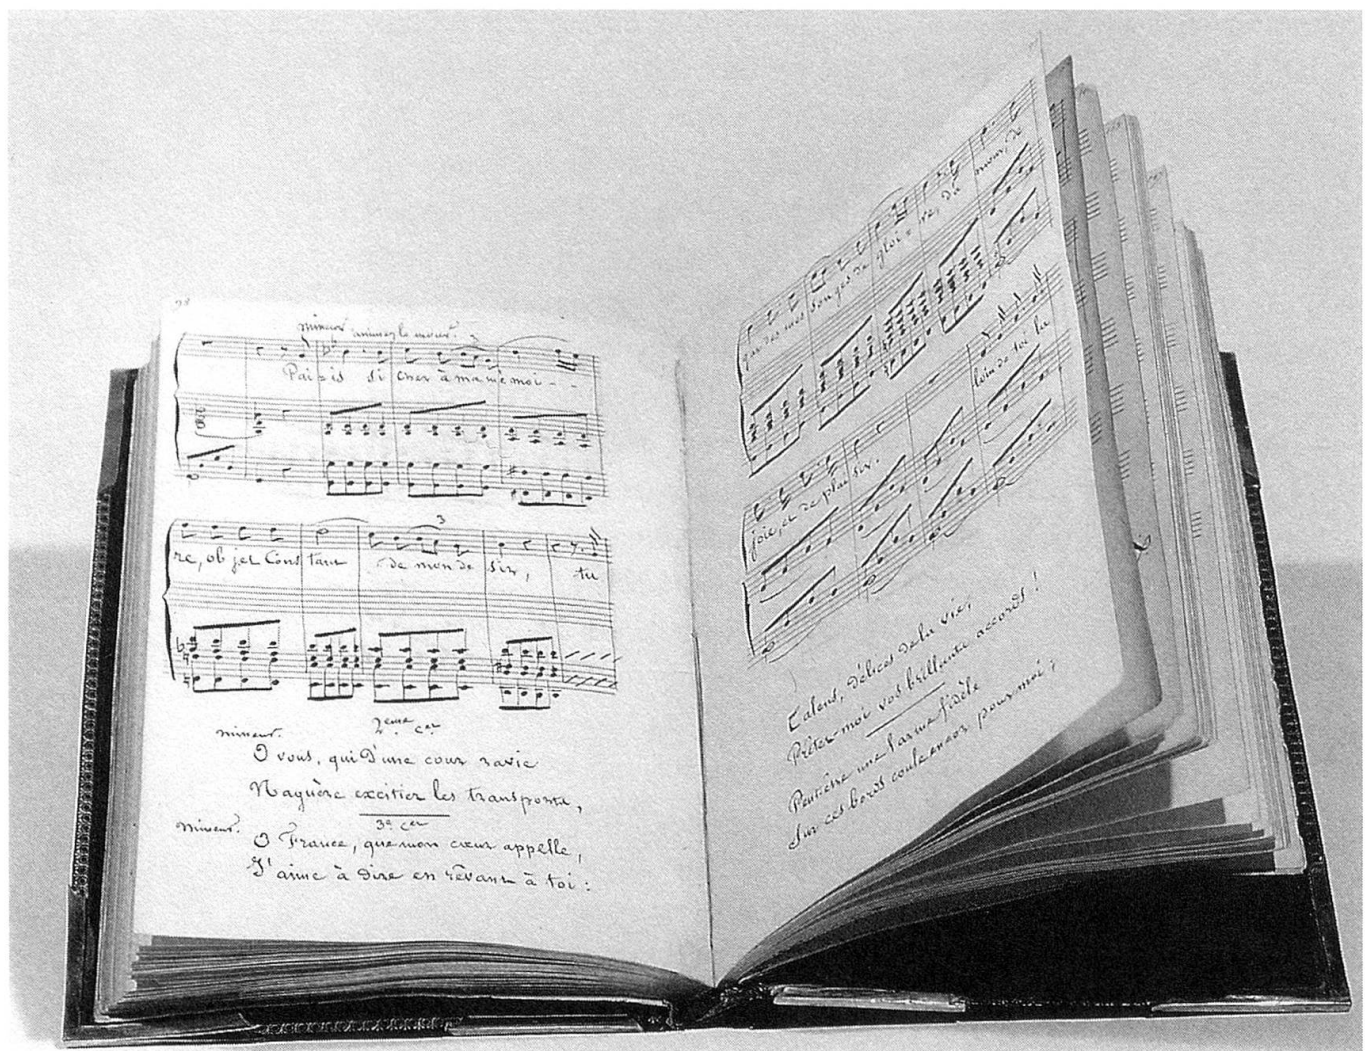 28
mineur animez le mouvt.
Pais is si cher à ma me moi - -
3
re, ob jet Cons tant de mon de sir, tu
2eme cer
mineur.
O vous, qui d'une cour ravie
Naguère excitiez les transports,
3e cer
mineur.
O France, que mon cœur appelle,
J'aime à dire en rêvant à toi :
que des mes songes de gloi = re, d'a mour, de
joie, et de plai sir. loin de toi la
Talens, délices de la vie,
Prêtez-moi vos brillants accords !
Peutêtre une larme fidèle
sur ces bords coule encor pour moi ?